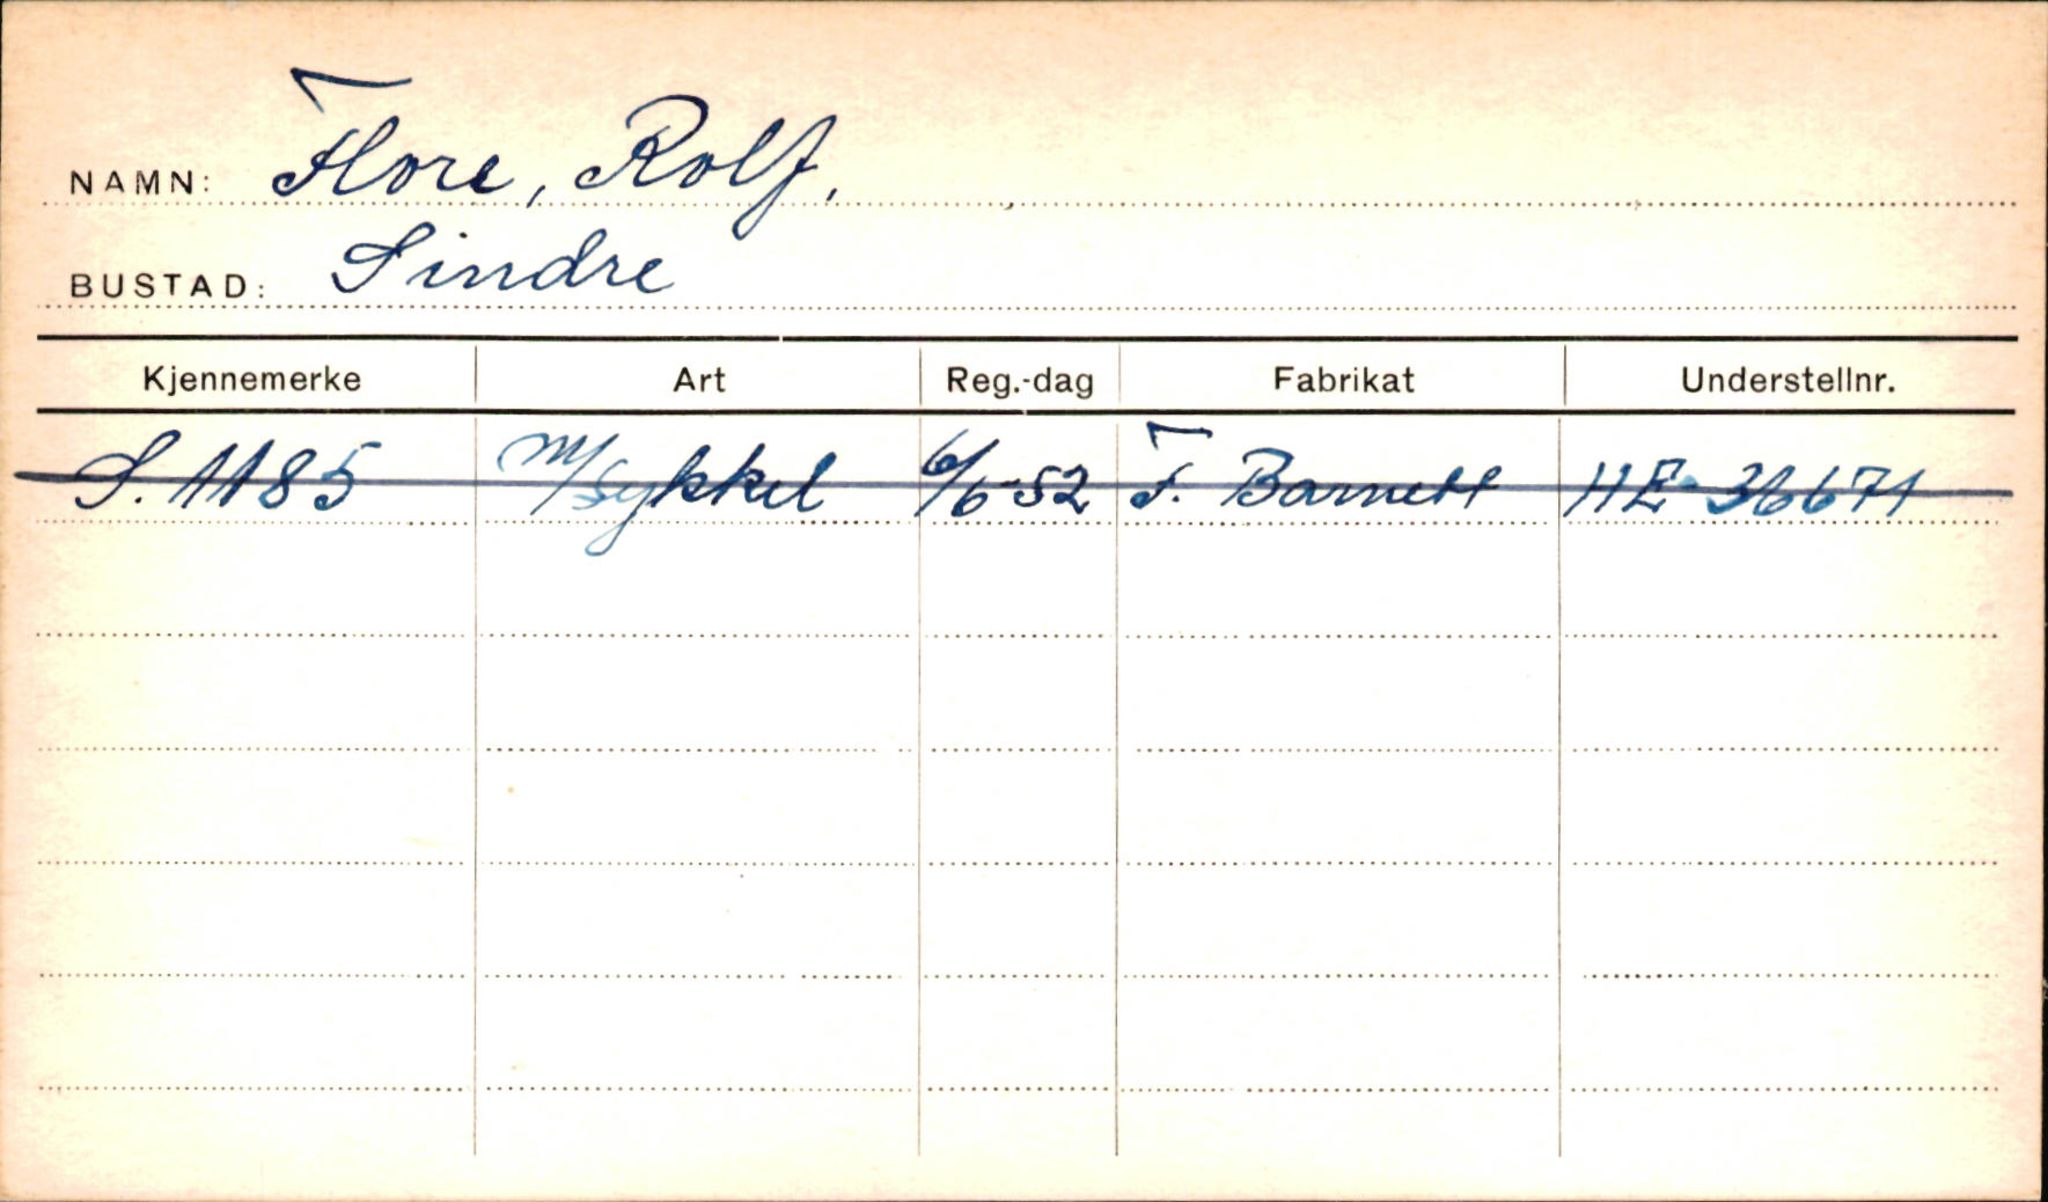 NAMN: Flore, Rolf,
BUSTAD: Sindre
Kjennemerke Art Reg.-dag Fabrikat Understellnr.
S. 1185 m/sykkel 6/6-52 F. Barnett HE-36671